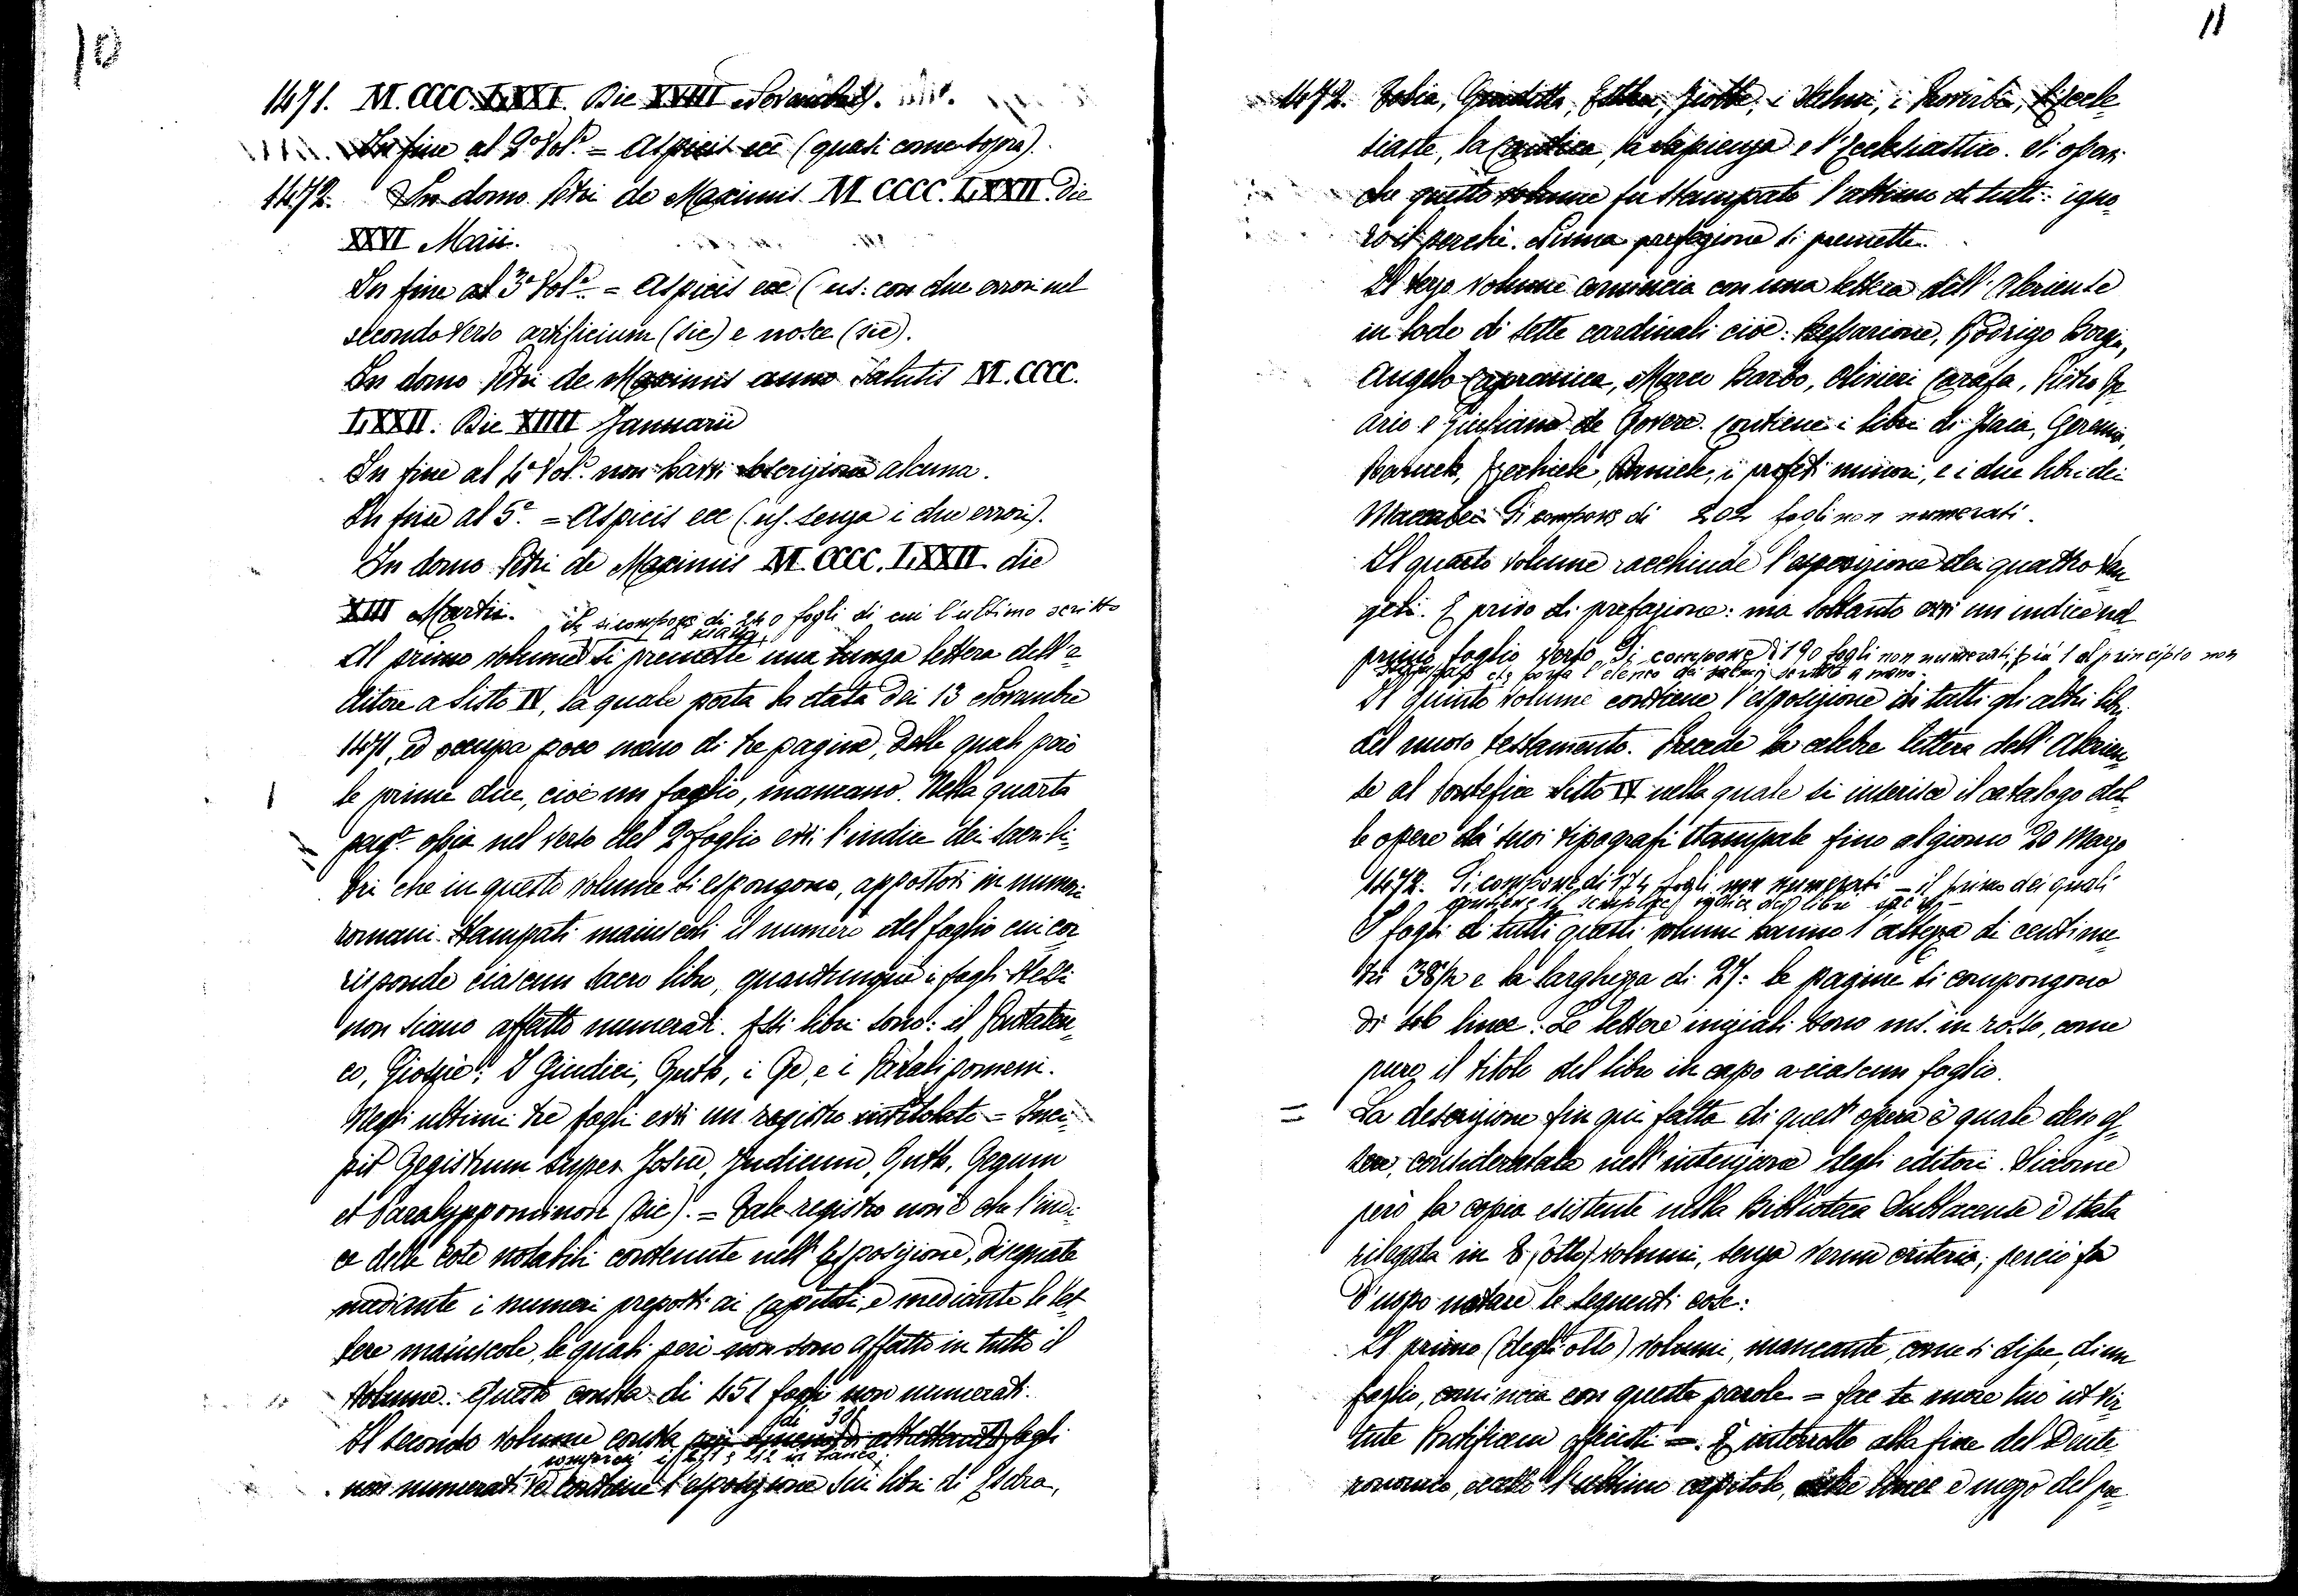 10
1471. M.CCCC.LXXI. Die XVIII Novembris.
In fine al 2º Vol.e = Aspicis ecc (quasi come sopra).
1472. In domo Petri de Maximis M.CCCC.LXXII. Die
XXVI Maii.
In fine al 3º Vol.e = Aspicis ecc (us: con due errori nel
secondo verso artificium (sic) e nosce (sic).
In domo Petri de Maximis anno Salutis M.CCCC.
LXXII. Die XIIII Januarii
In fine al 4º Vol.e non havvi iscrizione alcuna.
In fine al 5º = Aspicis ecc (us. senza i due errori).
In domo Petri de Maximis M.CCCC.LXXII die
XIII Martii.
che si compone di 240 fogli di cui l'ultimo scritto
a mano,
Al primo volume si premette una lunga lettera dell'e-
ditore a Sisto IV, la quale porta la data dei 13 Novembre
1471, ed occupa poco meno di tre pagine, delle quali però
le prime due, cioè un foglio, mancano. Nella quarta
pag.a ossia nel verso del 2º foglio evvi l'indice dei sacri li-
bri che in questo volume si espongono, appostovi in numeri
romani stampati maiuscoli il numero del foglio cui cor
risponde ciascun sacro libro, quantunque i fogli stessi
non siano affatto numerati. Essi libri sono: il Pentateu-
co, Giosuè, I Giudici, Ruth, i Re, e i Paralipomeni.
Negli ultimi tre fogli evvi un registro intitolato = Inci-
pit Registrum super Josue, Judicum, Ruth, Regum
et Paralyppominon (sic). = Tale registro non è che l'indi-
ce delle cose notabili contenute nell'Esposizione, disegnate
mediante i numeri preposti ai capitoli, e mediante le let-
tere maiuscole, le quali però non sono affatto in tutto il
volume. Questo consta di 451 fogli non numerati.
di 30
Il secondo volume consta più o meno di altrettanti fogli
compresi
non numerati. Vi contiene l'esposizione sui libri di Esdra,
11
1472. Tobia, Giuditta, Esther, Giobbe, i Salmi, i Proverbi, l'Eccle
siaste, la Cantica, la Sapienza e l'Ecclesiastico. Si osservi
che questo volume fu stampato l'ultimo di tutti: igno-
ro il perchè. Niuna prefazione si premette.
Il terzo volume comincia con una lettera dell'Aleriense
in lode di sette cardinali cioè: Bessarione, Rodrigo Borgia,
Angelo Capranica, Marco Barbo, Olivieri Carafa, Pietro Ri
ario e Giuliano de Rovere. Contiene i libri di Isaia, Geremia,
Baruch, Ezechiele, Daniele, i profeti minori, e i due libri dei
Maccabei. Si compone di 202 fogli non numerati.
Il quarto volume racchiude l'esposizione dei quattro Van
geli. È privo di prefazione: ma soltanto evvi un indice nel
primo foglio verso. Si compone di 190 fogli non numerati, più 1 al principio non
che porta l'elenco dei salmi scritto a mano.
Il quinto volume contiene l'esposizione di tutti gli altri libri
del nuovo testamento. Precede la celebre lettera dell'Alerien-
se al Pontefice Sisto IV nella quale si inserisce il catalogo del-
le opere da' suoi tipografi stampate fino al giorno 20 Marzo
1472. Si compone di 174 fogli non numerati - il primo dei quali
contiene il semplice indice dei libri sacri -
I fogli di tutti questi volumi hanno l'altezza di centime-
tri 38½ e la larghezza di 27: le pagine si compongono
di 46 linee. Le lettere iniziali sono ms. in rosso, come
pure il titolo del libro in capo a ciascun foglio.
= La descrizione fin qui fatta di quest'opera è quale deve es-
sere considerata nell'intenzione degli editori. Siccome
però la copia esistente nella Biblioteca Sublacense è stata
rilegata in 8 (otto) volumi, senza verun criterio, perciò fa
d'uopo notare le seguenti cose:
Il primo (degli otto) volumi, mancante, come si disse, di un
foglio, comincia con queste parole = fac te more tuo ut vir-
tute Pontificem = È interrotto alla fine del Deute
ronomio, eccetto l'ultimo capitolo, oltre linee e mezzo del pe-